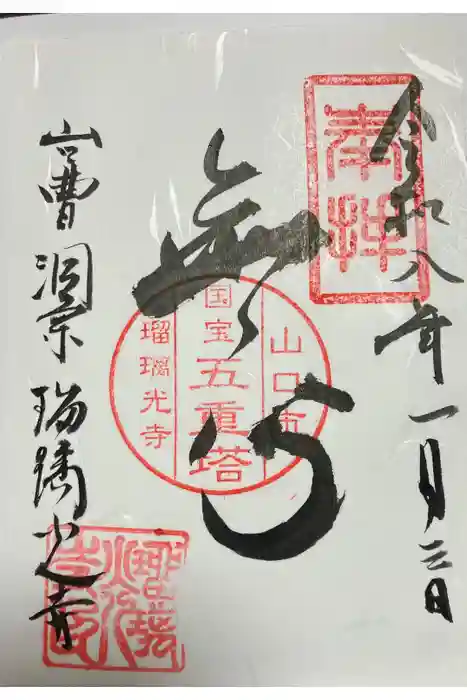 令和八年一月三日
奉拝
無
山口市
国宝五重塔
瑠璃光寺
山曹洞宗瑠璃光寺